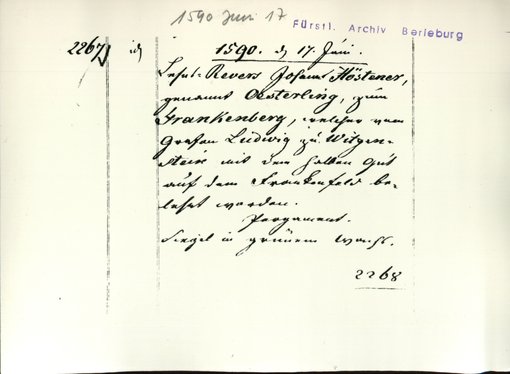 1590 Juni 17
Fürstl. Archiv Berleburg
2267 id 1590. d 17. Juni.
Lehns-Revers Johann Höstener,
genannt Oesterling, zum
Frankenberg, welcher vom
Grafen Ludwig zu Witgen-
stein mit dem halben Gut
auf dem Frankenfeld be-
lehnt worden.
Pergament.
Siegel in grünem Wachs.
2268